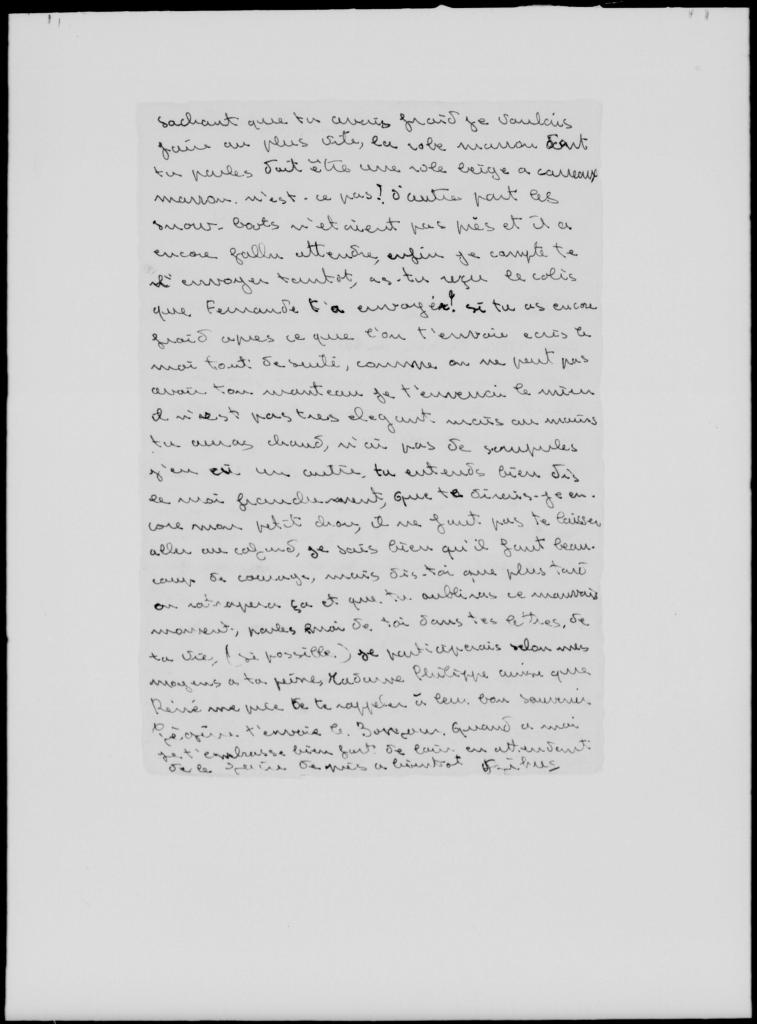 sachant que tu avais froid je voulais
faire au plus vite, la robe marron dont
tu parles doit être une robe beige a carreaux
marron. n'est-ce pas! d'autre part les
snow-boots n'etaient pas près et il a
encore fallu attendre, enfin je compte te
l'envoyer tantot, as-tu reçu le colis
que Fernande t'a envoyée! si tu as encore
froid apres ce que l'on t'envoie ecris le
moi tout de suite, comme on ne peut pas
avoir ton manteau je t'enverrai le mien
il n'est pas tres elegant mais au moins
tu auras chaud, n'ai pas de scrupules
j'en ai un autre, tu entends bien dis
le moi franchement, que te dirais-je en-
core mon petit chou, il ne faut pas te laisser
aller au cafard, je sais bien qu'il faut beau-
coup de courage, mais dis-toi que plus tard
on ratrapera ça et que tu oubliras ce mauvais
moment, parles moi de toi dans tes lettres, de
ta vie, (si possible.) je participerais selon mes
moyens a ta peine, Madame Philippe ainsi que
Réné me prie de te rappeler à leur bon souvenir
t'envoie le Bonjour. Quand a moi
je t'embrasse bien fort de loin en attendant
de le faire de près a bientot